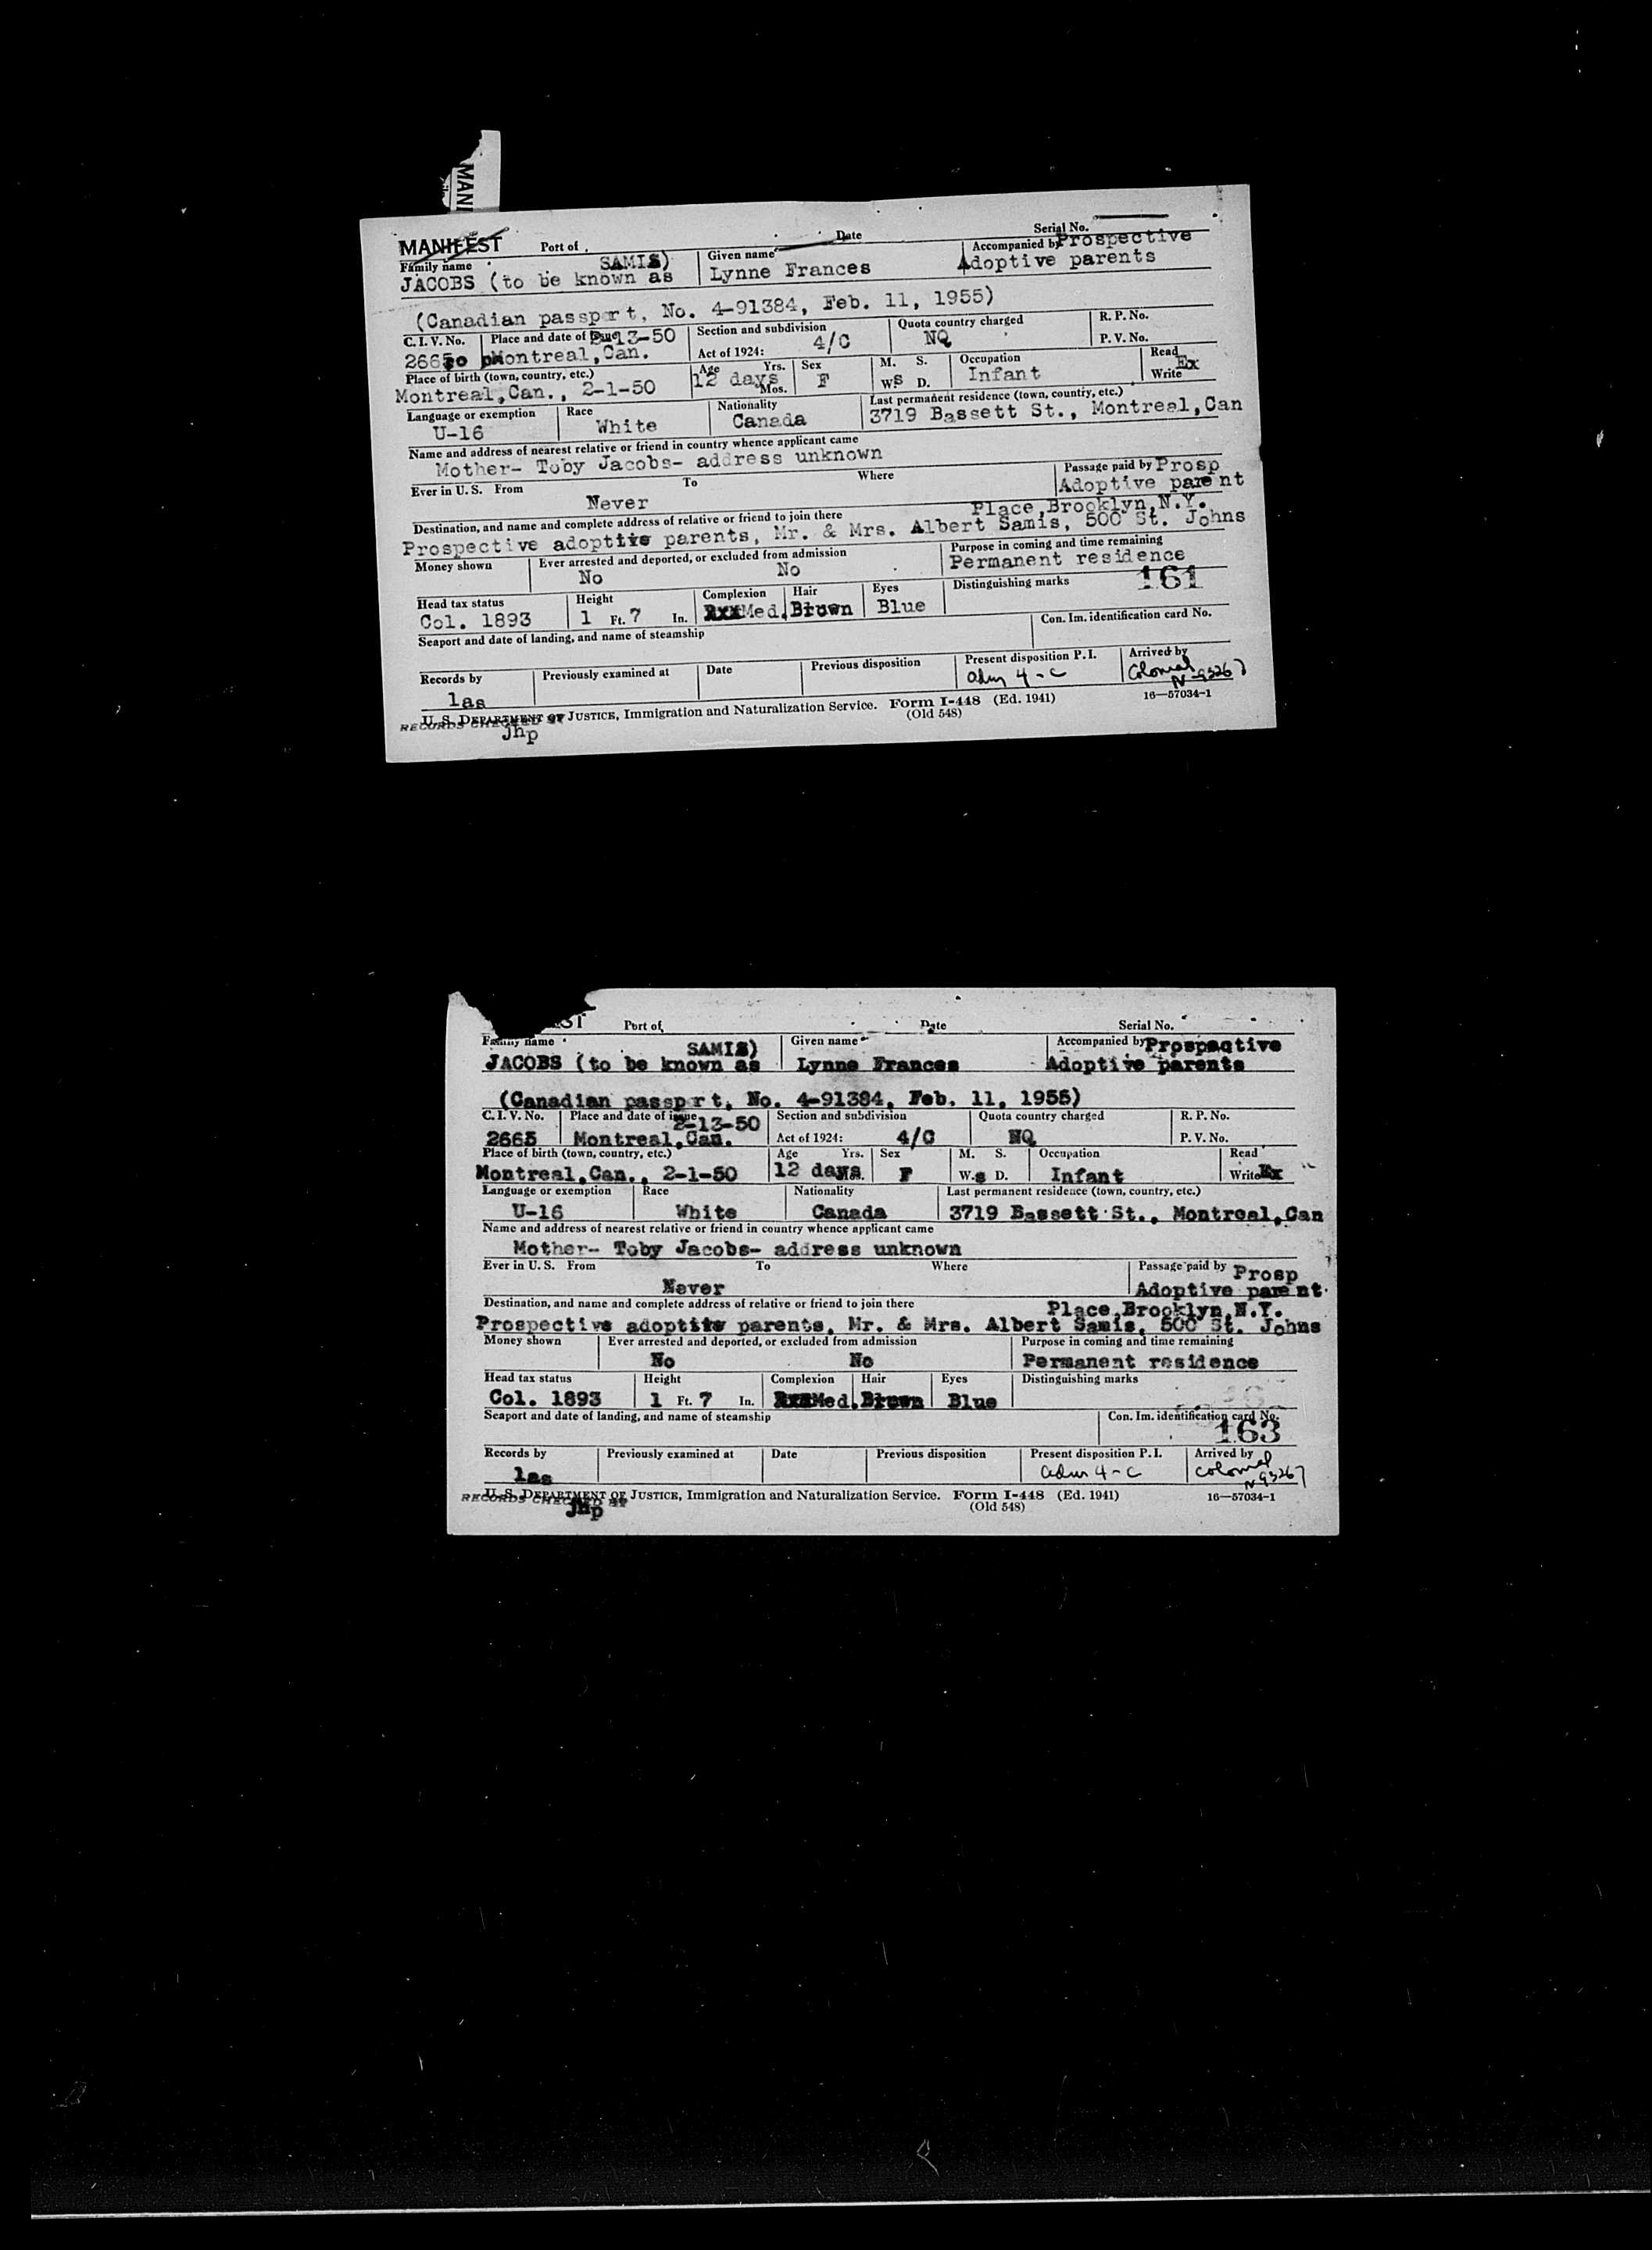 MANI
MANIFEST Port of Date Serial No.
Family name SAMIS) Given name Accompanied by Prospective
JACOBS (to be known as Lynne Frances Adoptive parents
(Canadian passport, No. 4-91384, Feb. 11, 1955)
C. I. V. No. Place and date of issue 2-13-50 Section and subdivision Quota country charged R. P. No.
Montreal, Can. Act of 1924: 4/C NQ P. V. No.
Place of birth (town, country, etc.) Age Yrs. Sex M. S. Occupation Read
Montreal,Can., 2-1-50 12 days Mos. F W S D. Infant Write Ex
Language or exemption Race Nationality Last permanent residence (town, country, etc.)
U-16 White Canada 3719 Bassett St., Montreal,Can
Name and address of nearest relative or friend in country whence applicant came
Mother- Toby Jacobs- address unknown
Ever in U. S. From To Where Passage paid by Prosp
Never Adoptive parent
Destination, and name and complete address of relative or friend to join there Place,Brooklyn,N.Y.
Prospective adoptive parents, Mr. & Mrs. Albert Samis, 500 St. Johns
Money shown Ever arrested and deported, or excluded from admission Purpose in coming and time remaining
No No Permanent residence
Head tax status Height Complexion Hair Eyes Distinguishing marks 161
Col. 1893 1 Ft. 7 In. Med. Brown Blue
Seaport and date of landing, and name of steamship Con. Im. identification card No.
Records by Previously examined at Date Previous disposition Present disposition P. I. Arrived by
las adm 4-C Colonial N-93267
U. S. DEPARTMENT OF JUSTICE, Immigration and Naturalization Service. Form I-448 (Ed. 1941) 16—57034-1
RECORDS CHECKED BY (Old 548)
jhp
ST Port of Date Serial No.
Family name SAMIS) Given name Accompanied by Prospective
JACOBS (to be known as Lynne Frances Adoptive parents
(Canadian passport, No. 4-91384, Feb. 11, 1955)
C. I. V. No. Place and date of issue 2-13-50 Section and subdivision Quota country charged R. P. No.
2665 Montreal,Can. Act of 1924: 4/C NQ P. V. No.
Place of birth (town, country, etc.) Age Yrs. Sex M. S. Occupation Read
Montreal,Can., 2-1-50 12 days F W.S D. Infant Write Ex
Language or exemption Race Nationality Last permanent residence (town, country, etc.)
U-16 White Canada 3719 Bassett St., Montreal,Can
Name and address of nearest relative or friend in country whence applicant came
Mother- Toby Jacobs- address unknown
Ever in U. S. From To Where Passage paid by Prosp
Never Adoptive parent
Destination, and name and complete address of relative or friend to join there Place,Brooklyn,N.Y.
Prospective adoptive parents, Mr. & Mrs. Albert Samis, 500 St. Johns
Money shown Ever arrested and deported, or excluded from admission Purpose in coming and time remaining
No No Permanent residence
Head tax status Height Complexion Hair Eyes Distinguishing marks
Col. 1893 1 Ft. 7 In. Med. Brown Blue
Seaport and date of landing, and name of steamship Con. Im. identification card No.
163
Records by Previously examined at Date Previous disposition Present disposition P. I. Arrived by
las adm 4-C Colonial N-93267
U. S. DEPARTMENT OF JUSTICE, Immigration and Naturalization Service. Form I-448 (Ed. 1941) 16—57034-1
RECORDS CHECKED BY (Old 548)
jhp